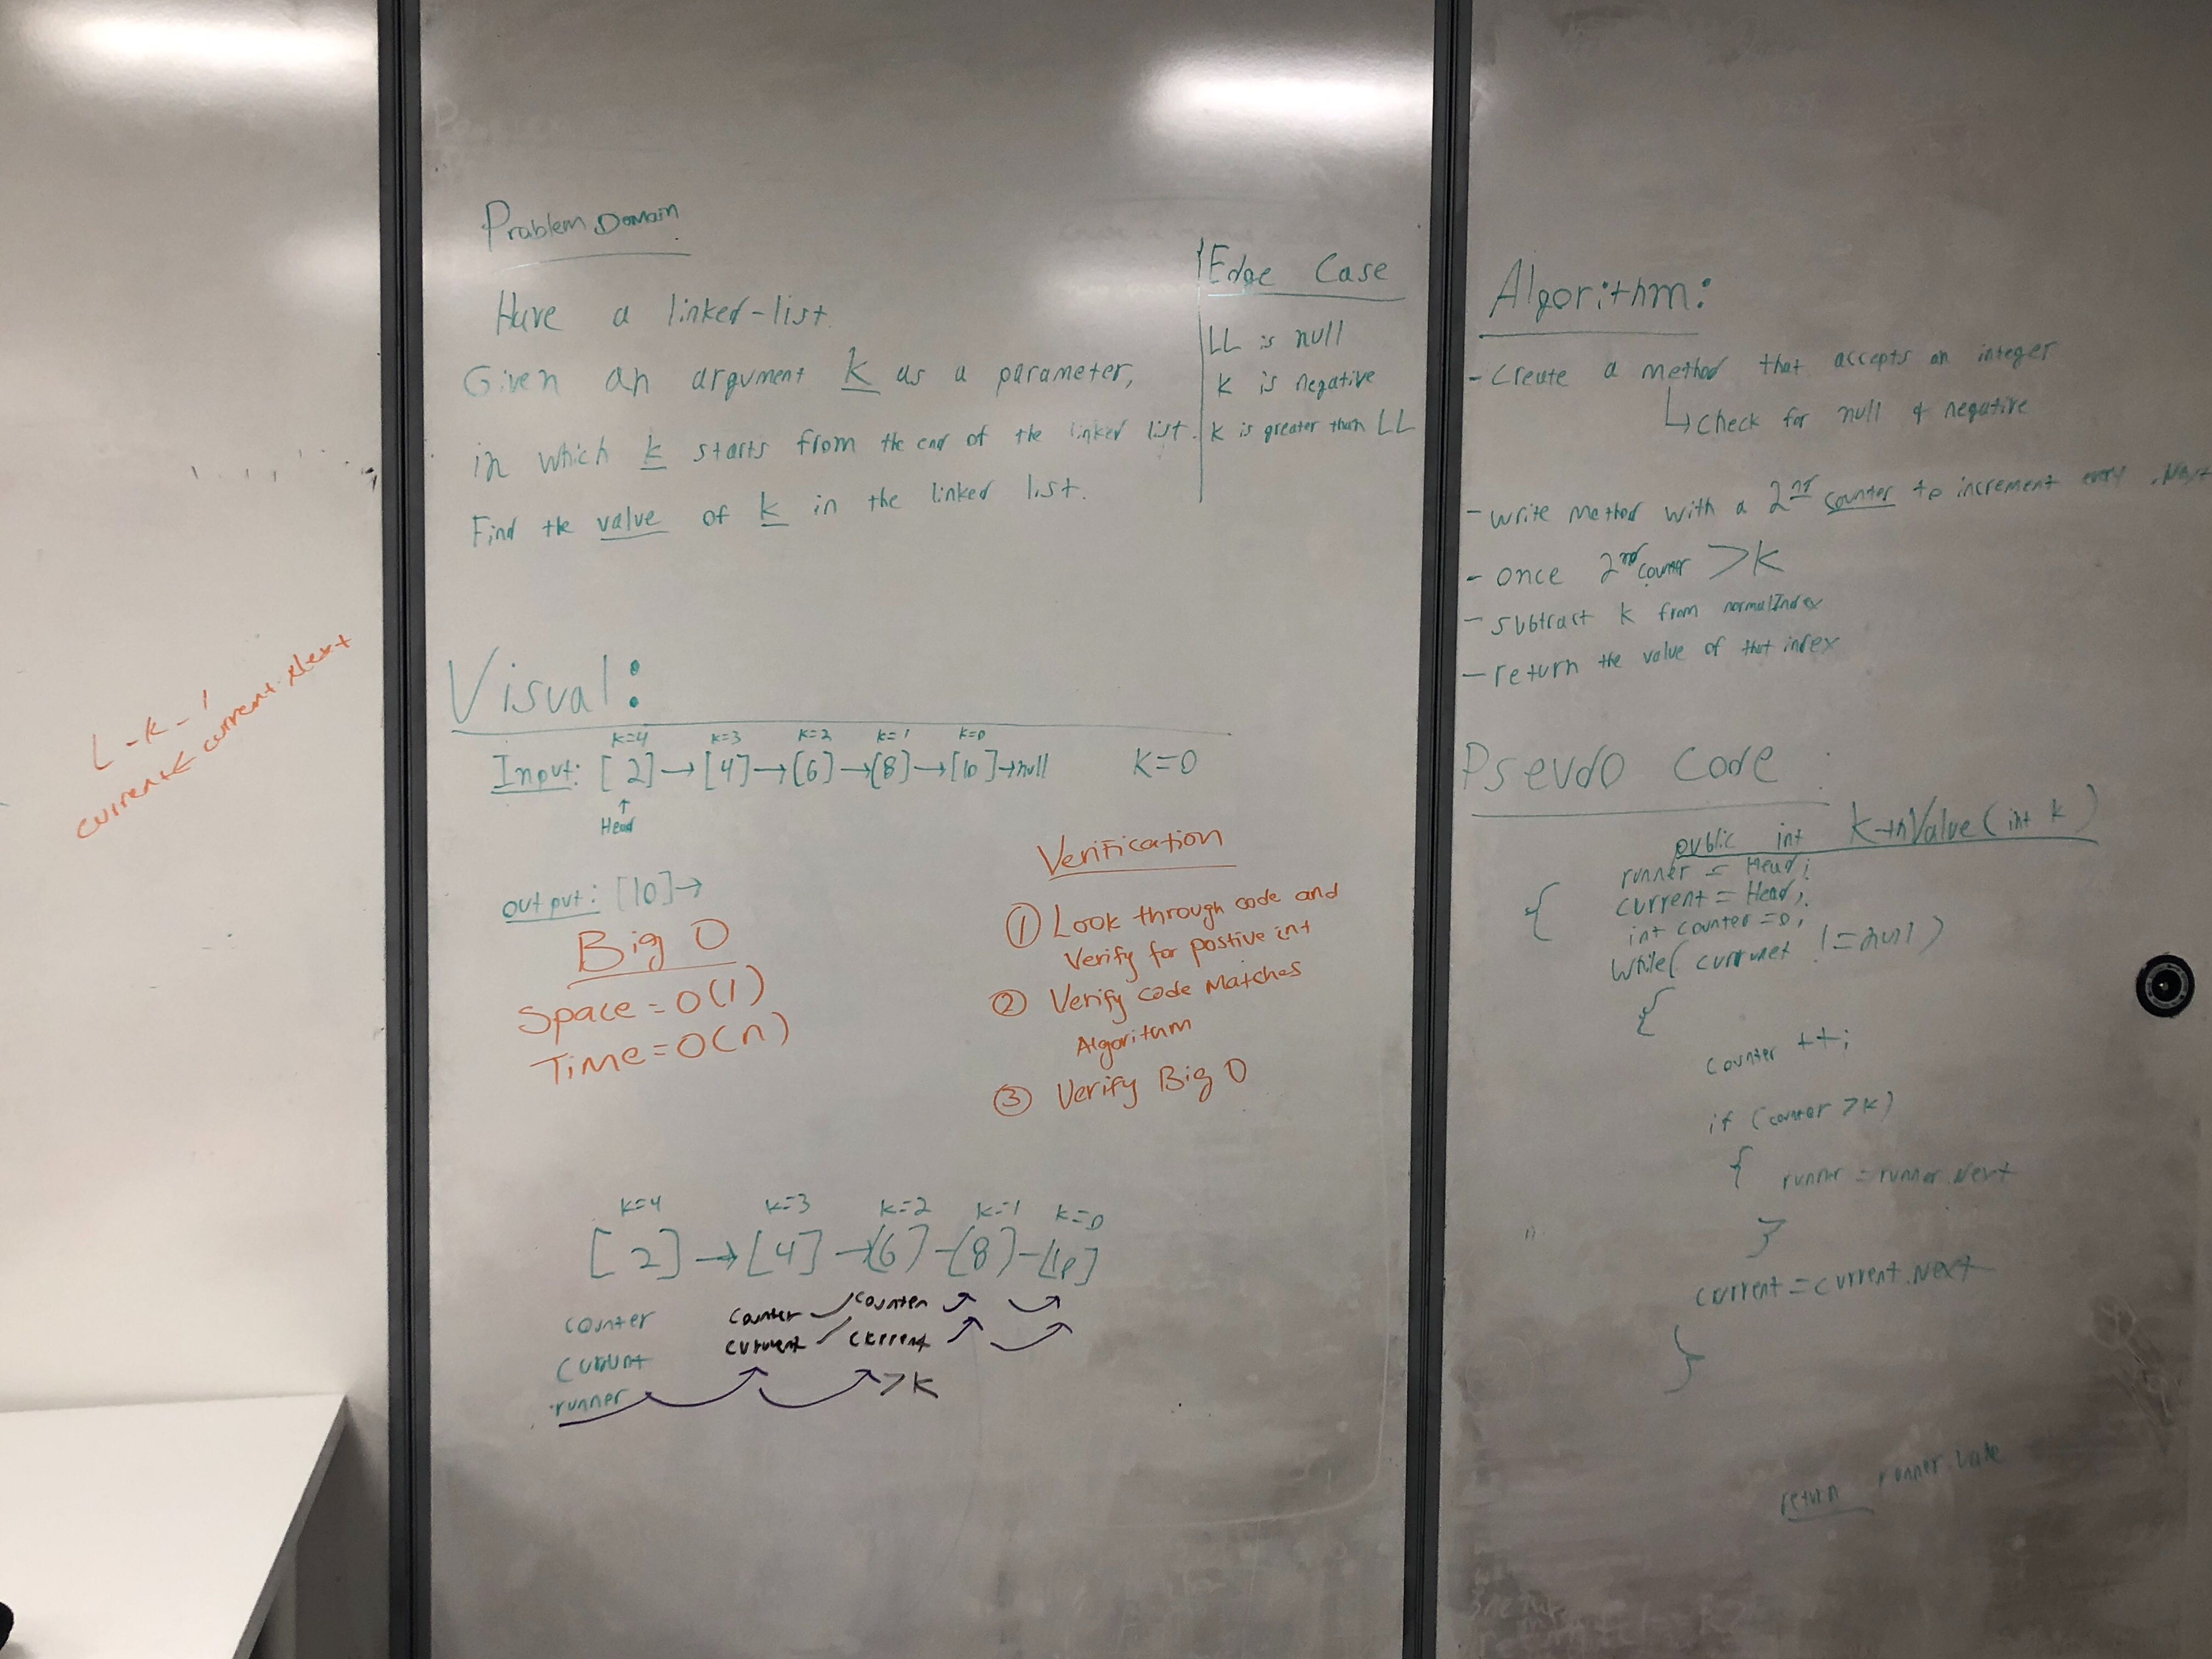 L - k - 1
current < current.Next
Problem Domain
Have a linked-list.
Given an argument k as a parameter,
in which k starts from the end of the linked list.
Find the value of k in the linked list.
Edge Case
LL is null
k is negative
k is greater than LL
Visual:
k=4 k=3 k=2 k=1 k=0
Input: [2]→[4]→[6]→[8]→[10]→null K=0
↑
Head
output: [10]→
Big O
Space = O(1)
Time = O(n)
Verification
① Look through code and
Verify for postive int
② Verify code Matches
Algoritum
③ Verify Big O
k=4 k=3 k=2 k=1 k=0
[2]→[4]→[6]-[8]-[10]
counter counter counter
current current
runner >K
Algorithm:
- Create a method that accepts an integer
↳ check for null & negative
- write method with a 2nd counter to increment every .Next
- once 2nd counter >K
- subtract k from normalIndex
- return the value of that index
Psevdo code :
public int KthValue(int k)
{ runner = Head;
current = Head;
int counter = 0;
while( !=null)
{
counter ++;
if (counter >k)
{ runner = runner.Next
}
current = current.Next
}
return runner.